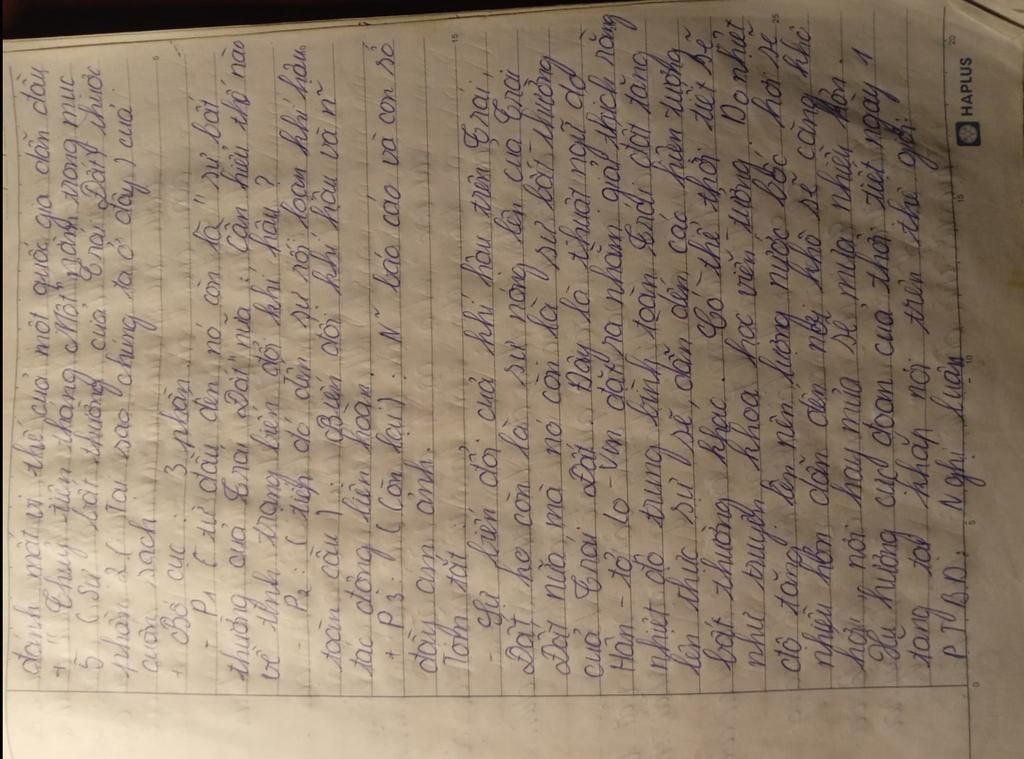 đánh mất vị thế của một quốc gia dẫn đầu
+ Thủy tiên tháng Một nằm trong mục
5 (Sự bất thường của Trái Đất) thuộc
phần 2 (Tại sao chúng ta ở đây) của
cuốn sách
+ Bố cục : 3 phần.
- P1 (từ đầu đến nó còn là "sự bất
thường của Trái Đất" nữa: Cần hiểu thế nào
về tình trạng biến đổi khí hậu ?
- P2 : (tiếp đó đến sự rối loạn khí hậu
toàn cầu) : Biến đổi khí hậu và n~
tác động liên hoàn.
+ P3 : (Còn lại) : N~ báo cáo và con số
đầy ám ảnh.
Tóm tắt
- Sự biến đổi của khí hậu trên Trái
Đất họ còn là sự nóng lên của Trái
Đất nữa mà nó còn là sự bất thường
của Trái Đất. Đây là thuật ngữ do
Hân-tơ Lo-vin đặt ra nhằm giải thích rằng
nhiệt độ trung bình toàn Trái đất tăng
lên thực sự sẽ dẫn đến các hiện tượng
bất thường khác. Có thể thời tiết sẽ
như truyện khoa học viễn tưởng. Do nhiệt
độ tăng lên nên lượng nước bốc hơi sẽ
nhiều hơn dẫn đến nơi khô sẽ càng khô
hơn nơi hay mưa sẽ mưa nhiều hơn.
Xu hướng cực đoan của thời tiết ngày 1
tăng tại khắp nơi trên thế giới
PTVBĐ: Nghị luận
HAPLUS
5
15
25
0
5
10
15
20